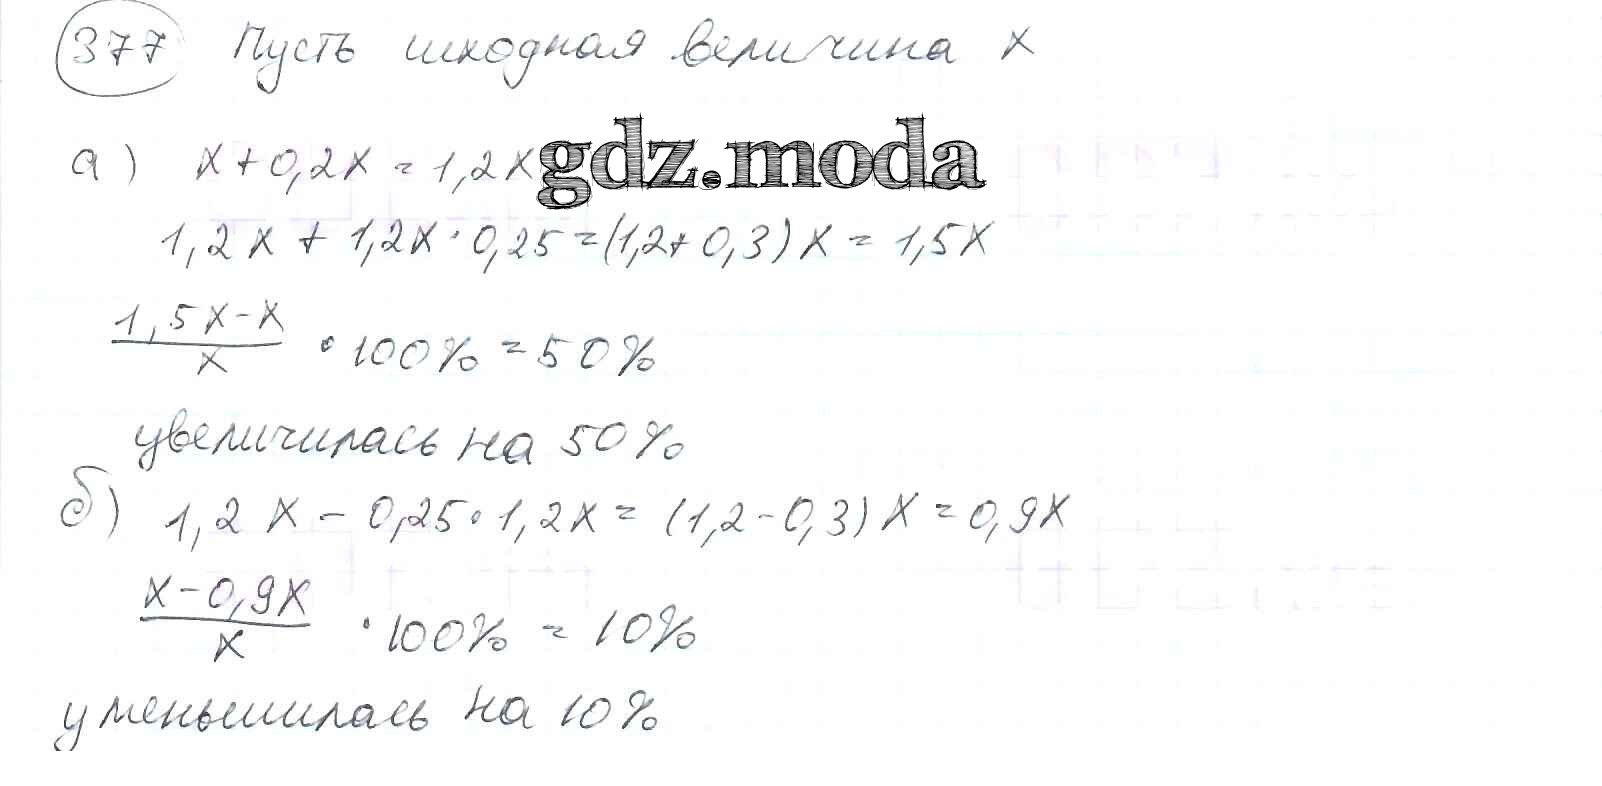 377 Пусть исходная величина x
а) x+0,2x=1,2x gdz.moda
1,2x+1,2x·0,25=(1,2+0,3)x=1,5x
1,5x-x
x
·100%=50%
увеличилась на 50%
б) 1,2x-0,25·1,2x=(1,2-0,3)x=0,9x
x-0,9x
x
·100%=10%
уменьшилась на 10%